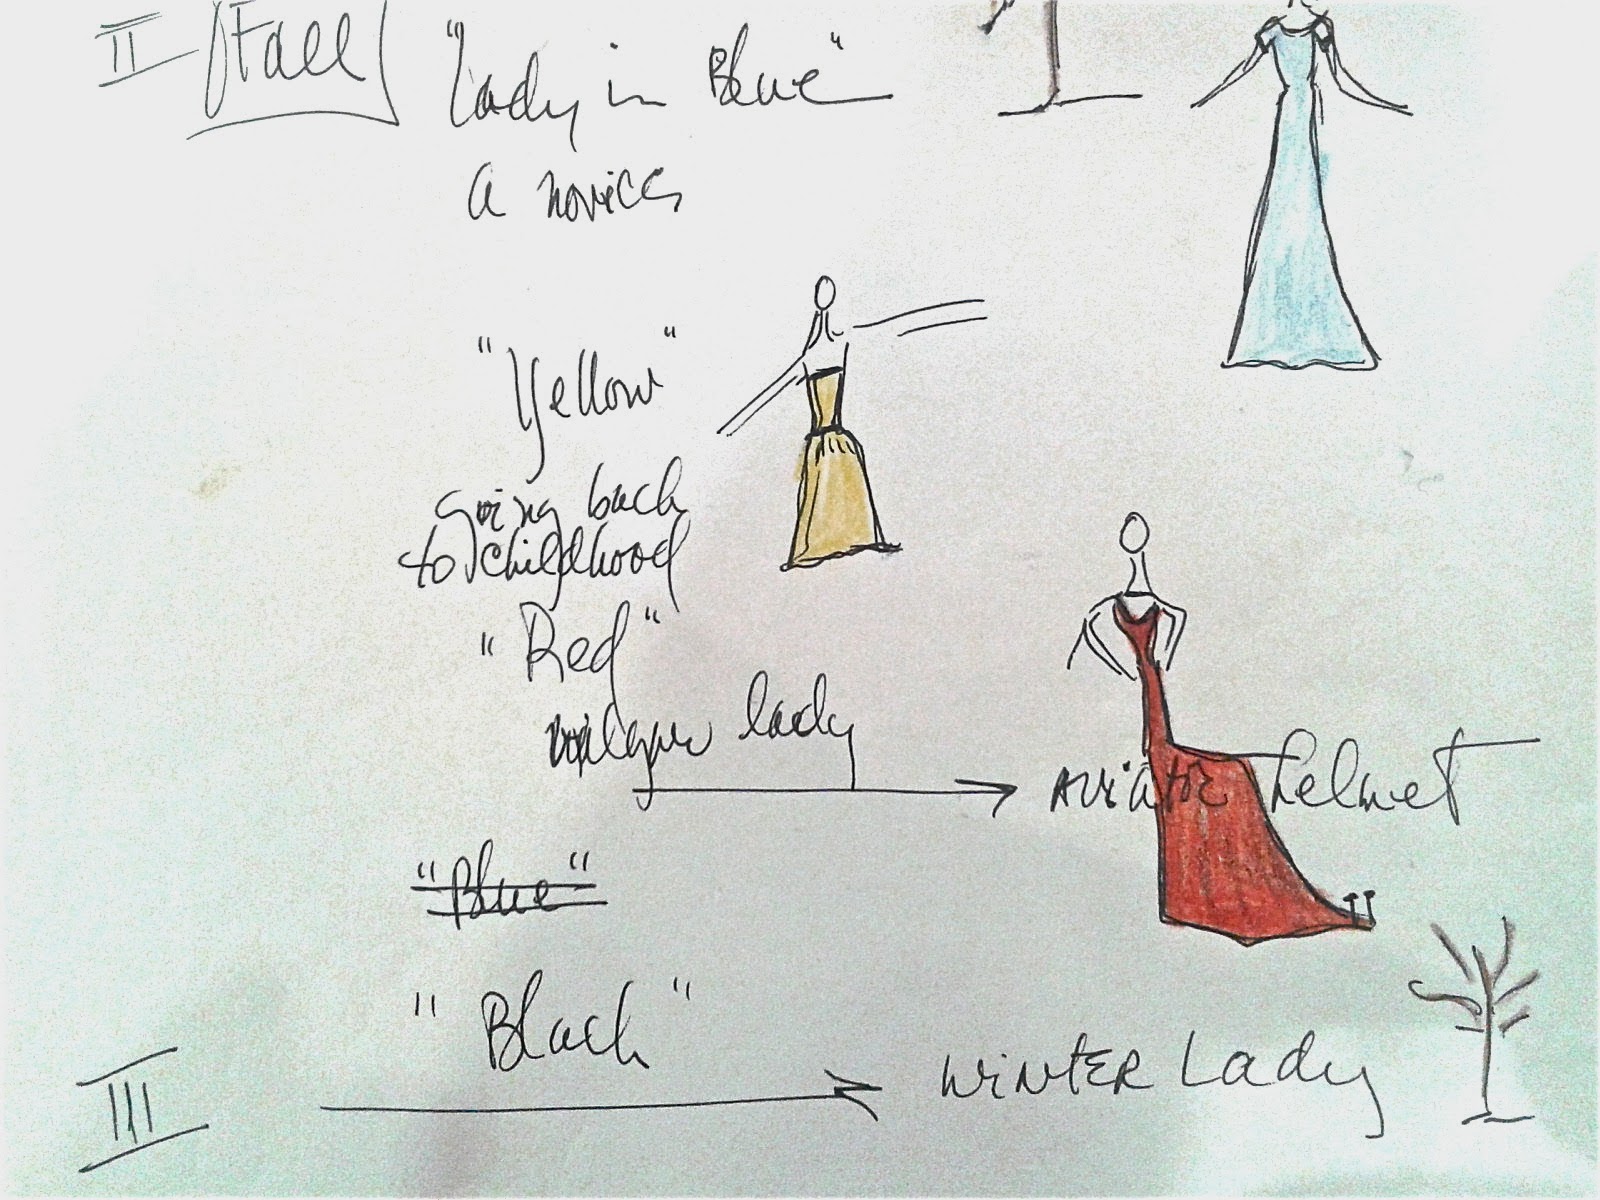 II Fall "Lady in Blue"
a novice
"Yellow"
going back
to childhood
"Red"
vulgar lady
aviator helmet
"Blue"
"Black"
III
WINTER Lady